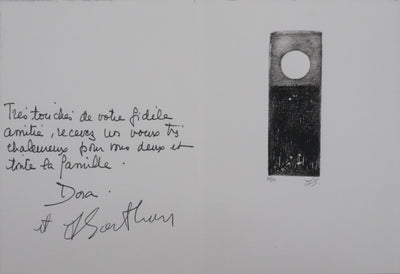 Très touchés de votre fidèle
amitié, recevez nos vœux très
chaleureux pour vous deux et
toute la famille.
Dora.
et